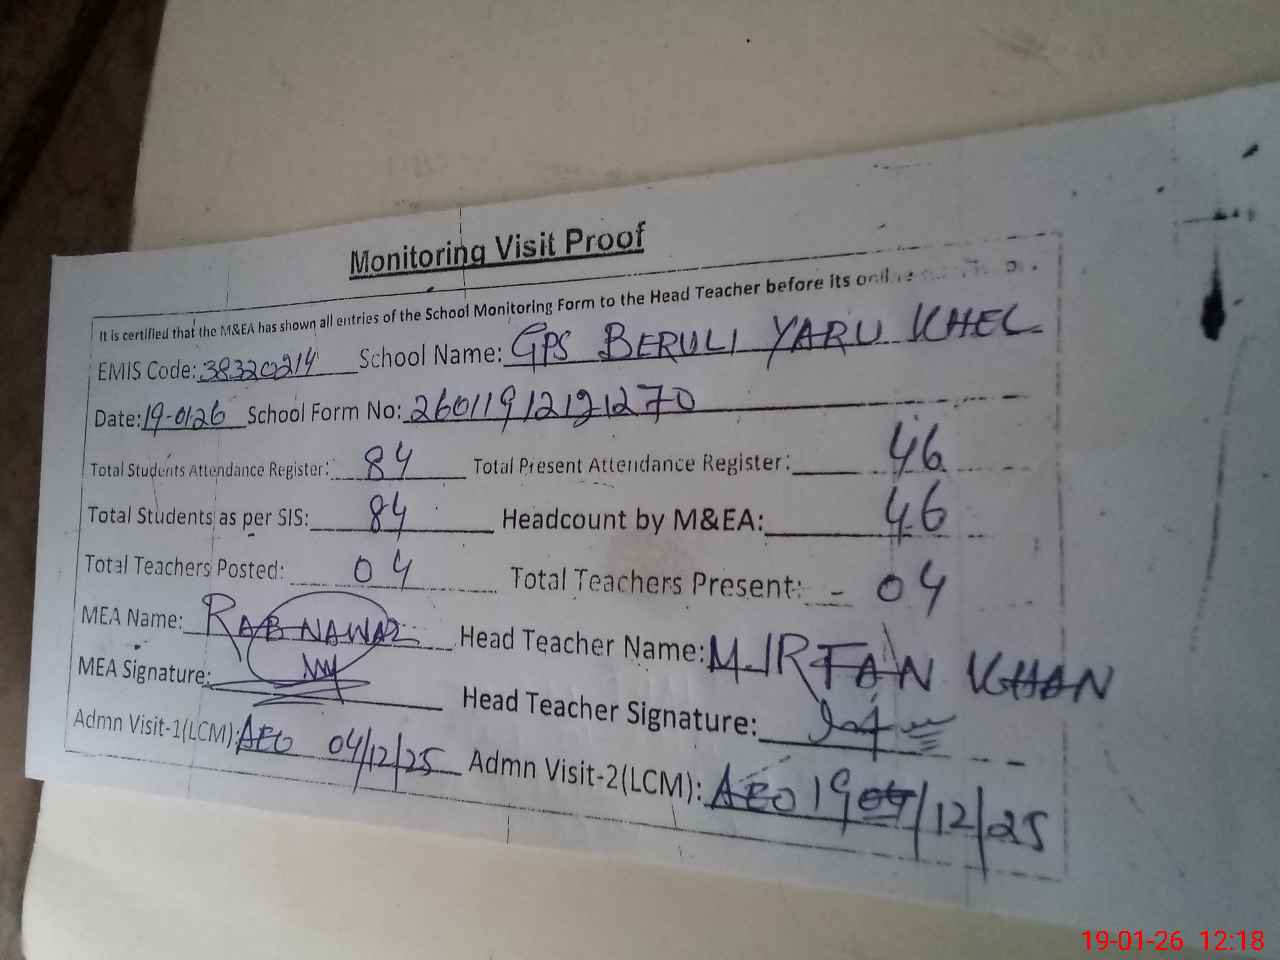 Monitoring Visit Proof
It is certified that the M&EA has shown all entries of the School Monitoring Form to the Head Teacher before its
EMIS Code: 38320214 School Name: GPS BERULI YARU KHEL
Date: 19-01-26 School Form No: 26011912121270
Total Students Attendance Register: 84 Total Present Attendance Register: 46
Total Students as per SIS: 84 Headcount by M&EA: 46
Total Teachers Posted: 04 Total Teachers Present: - 04
MEA Name: RAB NAWAZ Head Teacher Name: M IRFAN KHAN
MEA Signature: Head Teacher Signature:
Admn Visit-1(LCM): AEO 04/12/25 Admn Visit-2(LCM): AEO 19/12/25
19-01-26 12:18